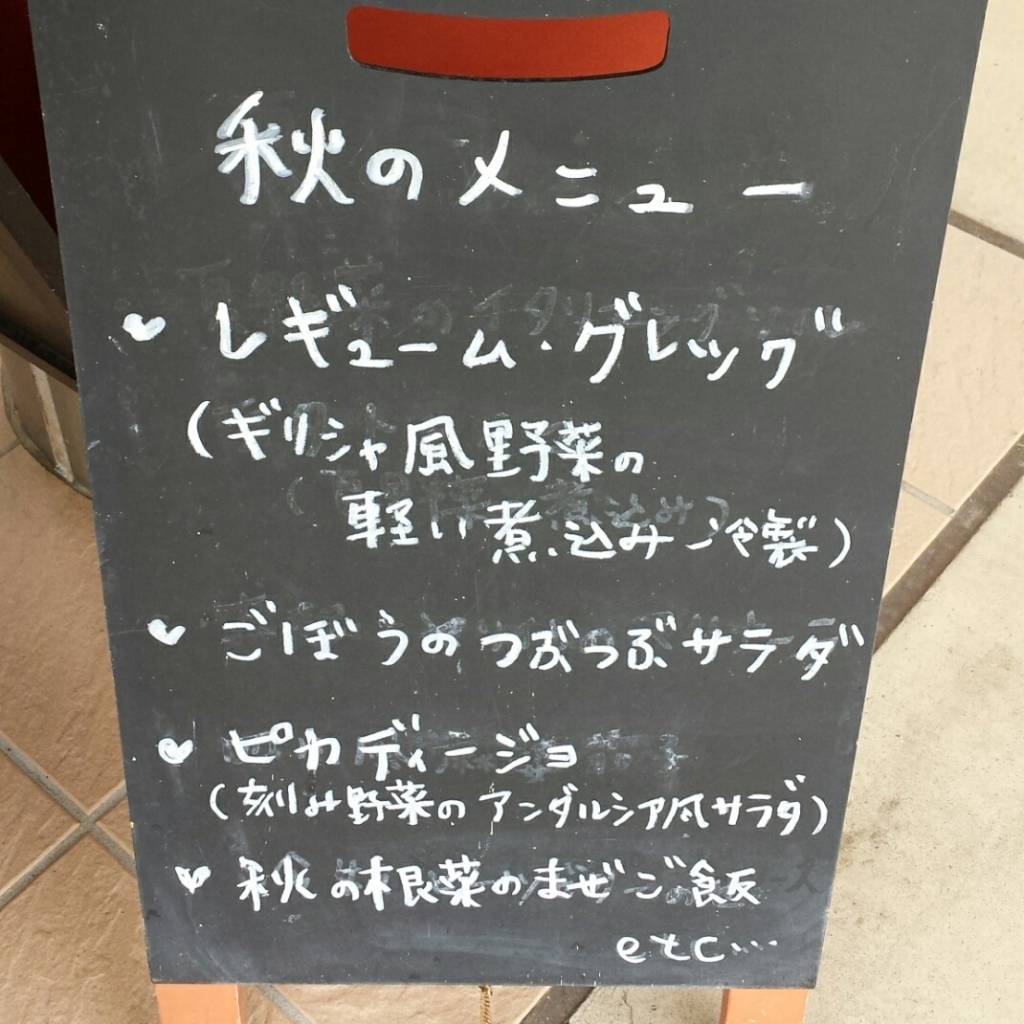 秋のメニュー
レギューム・グレッグ
(ギリシャ風野菜の
軽い煮込み 冷製)
ごぼうのつぶつぶサラダ
ピカディージョ
(刻み野菜のアンダルシア風サラダ)
秋の根菜のまぜご飯
etc…